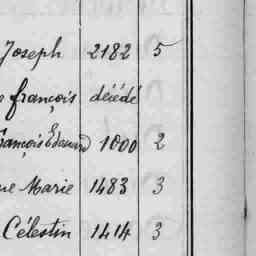 Joseph 2182 5
françois décédé
François Edouard 1000 2
ue Marie 1483 3
Célestin 1414 3